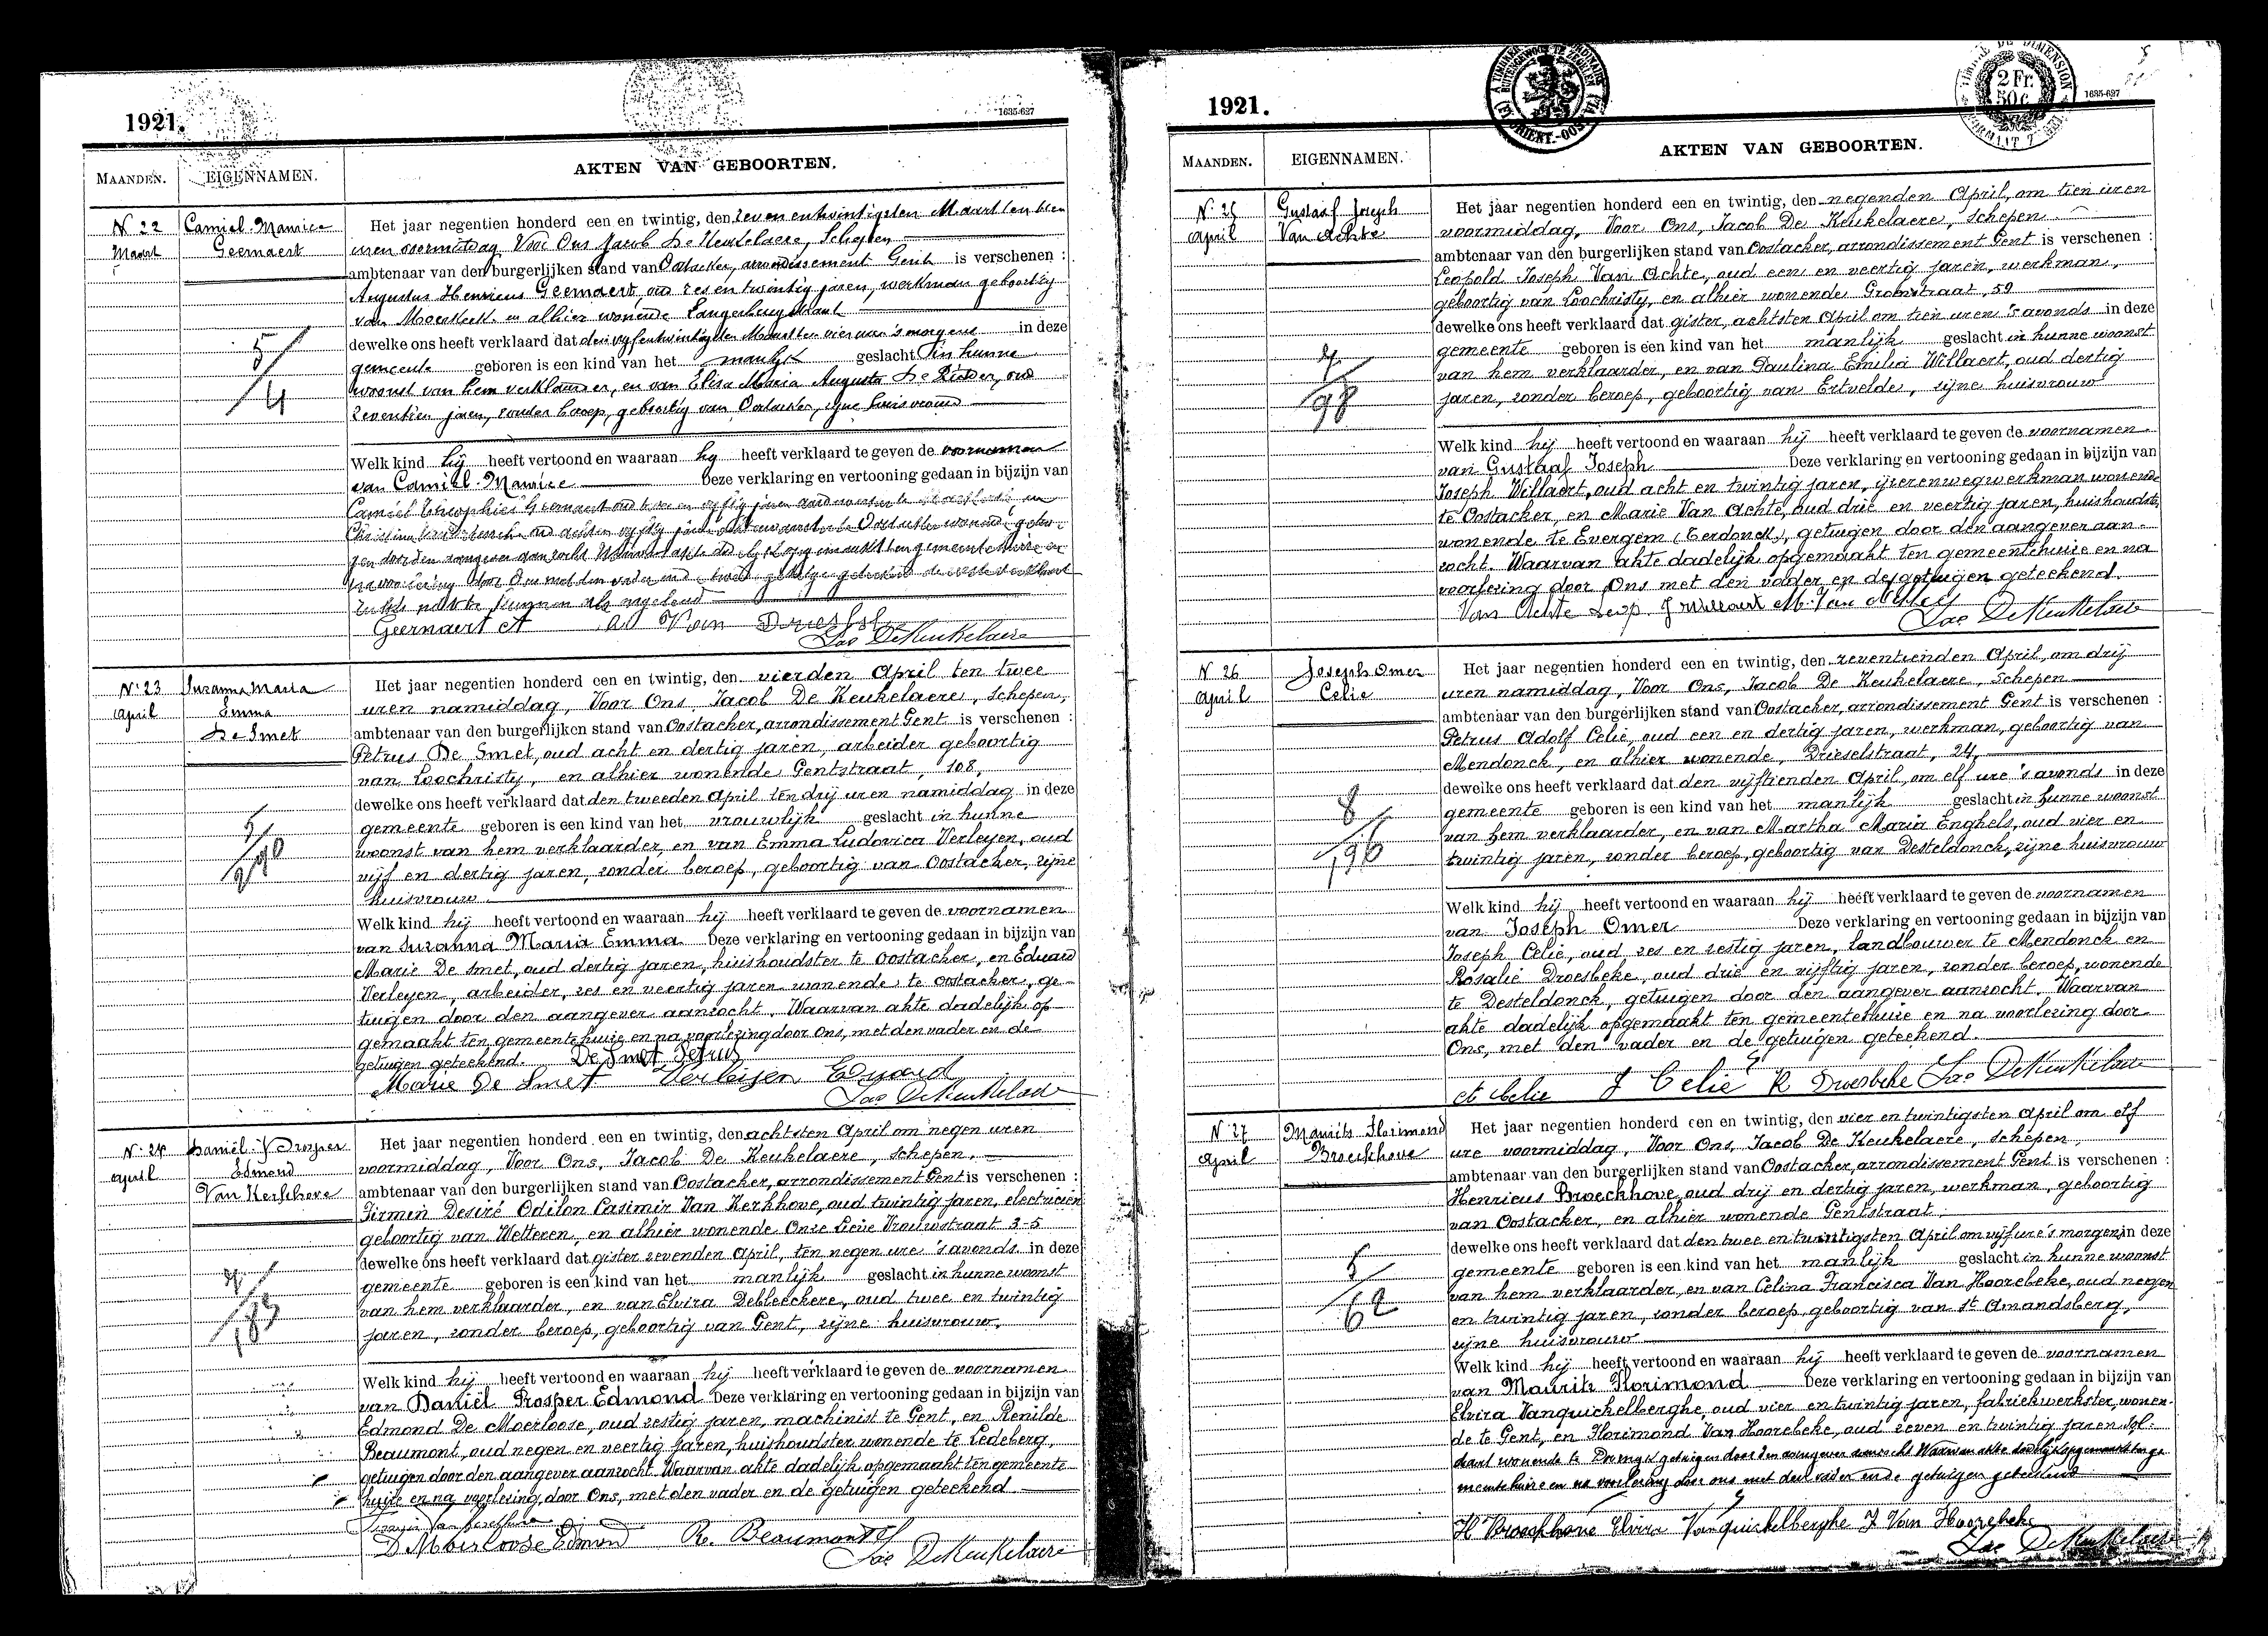 1921.
1635-627
MAANDEN.
EIGENNAMEN.
AKTEN VAN GEBOORTEN.
N. 22
Maart
Camiel-Maurice
Geernaert
5/4
Het jaar negentien honderd een en twintig, den zeven en twintigsten Maart ten tien
uren voormiddag Voor Ons Jacob De Keukelaere, Schepen
ambtenaar van den burgerlijken stand van Oostacker, arrondissement Gent is verschenen :
Augustus Henricus Geernaert, oud zes en twintig jaren, werkman geboortig
van Moerbeke en alhier wonende Langerbrugstraat
dewelke ons heeft verklaard dat den vijf en twintigsten Maart ten vier uren 's morgens in deze
gemeente geboren is een kind van het manlijk geslacht in hunne
woonst van hem verklaarder, en van Elisa Maria Augusta De Ridder, oud
zeventien jaren, zonder beroep, geboortig van Oostacker, zijne huisvrouw
Welk kind hij heeft vertoond en waaraan hij heeft verklaard te geven de voornamen
van Camiel-Maurice Deze verklaring en vertooning gedaan in bijzijn van
Camiel Theophiel Geernaert oud en vijftig jaren
Oostacker wonende getui-
gen door den aangever aanzocht Waarvan akte dadelijk opgemaakt ten gemeentehuize en
na voorlezing door Ons met den vader en getuige geteekend de eerste verklaart
zulks niet te kunnen als ongeleerd
Geernaert A Van Driessche
Jac DeKeukelaere
N. 23
April
Suzanna Maria
Emma
De Smet
5/290
Het jaar negentien honderd een en twintig, den vierden April ten twee
uren namiddag, Voor Ons, Jacob De Keukelaere, schepen,
ambtenaar van den burgerlijken stand van Oostacker, arrondissement Gent is verschenen :
Petrus De Smet, oud acht en dertig jaren, arbeider geboortig
van Loochristy, en alhier wonende Gentstraat, 108,
dewelke ons heeft verklaard dat den tweeden April ten drij uren namiddag in deze
gemeente geboren is een kind van het vrouwlijk geslacht in hunne
woonst van hem verklaarder, en van Emma Ludovica Verleyen, oud
vijf en dertig jaren, zonder beroep, geboortig van Oostacker, zijne
huisvrouw
Welk kind hij heeft vertoond en waaraan hij heeft verklaard te geven de voornamen
van Suzanna Maria Emma Deze verklaring en vertooning gedaan in bijzijn van
Marie De Smet, oud dertig jaren, huishoudster te Oostacker, en Eduard
Verleyen, arbeider, zes en veertig jaren wonende te Oostacker, ge-
tuigen door den aangever aanzocht. Waarvan akte dadelijk op-
gemaakt ten gemeentehuize en na voorlezing door Ons, met den vader en de
getuigen geteekend. De Smet Petrus
Marie De Smet Verleijen Eduard
Jac DeKeukelaere
N. 24
April
Daniël-Prosper
Edmond
Van Kerkhove
7/183
Het jaar negentien honderd een en twintig, den achtsten April om negen uren
voormiddag, Voor Ons, Jacob De Keukelaere, schepen,
ambtenaar van den burgerlijken stand van Oostacker, arrondissement Gent is verschenen :
Firmin Desiré Odilon Casimir Van Kerkhove, oud twintig jaren, electricien
geboortig van Wetteren, en alhier wonende Onze Lieve Vrouwstraat 3-5
dewelke ons heeft verklaard dat gister zevenden April, ten negen ure 's avonds in deze
gemeente geboren is een kind van het manlijk geslacht in hunne woonst
van hem verklaarder, en van Elvira Debleeckere, oud twee en twintig
jaren, zonder beroep, geboortig van Gent, zijne huisvrouw,
Welk kind hij heeft vertoond en waaraan hij heeft verklaard te geven de voornamen
van Daniël Prosper Edmond Deze verklaring en vertooning gedaan in bijzijn van
Edmond De Moerloose, oud zestig jaren, machinist te Gent, en Renilde
Beaumont, oud negen en veertig jaren, huishoudster wonende te Ledeberg,
getuigen door den aangever aanzocht. Waarvan akte dadelijk opgemaakt ten gemeente-
huize en na voorlezing, door Ons, met den vader en de getuigen geteekend
Firmin Van Kerckhove
D Moerloose Edmond Re. Beaumont
Jac DeKeukelaere
1921.
2 Fr.
50 c.
1635-627
MAANDEN.
EIGENNAMEN.
AKTEN VAN GEBOORTEN.
N. 25
April
Gustaaf Joseph
Van Achte
7/98
Het jaar negentien honderd een en twintig, den negenden April, om tien uren
voormiddag, Voor Ons, Jacob De Keukelaere, schepen
ambtenaar van den burgerlijken stand van Oostacker, arrondissement Gent is verschenen :
Leopold Joseph Van Achte, oud een en veertig jaren, werkman,
geboortig van Loochristy, en alhier wonende Groenstraat, 59
dewelke ons heeft verklaard dat gister, achtsten April om tien uren 's avonds in deze
gemeente geboren is een kind van het manlijk geslacht in hunne woonst
van hem verklaarder, en van Paulina Emilia Willaert, oud dertig
jaren, zonder beroep, geboortig van Ertvelde, zijne huisvrouw
Welk kind hij heeft vertoond en waaraan hij heeft verklaard te geven de voornamen
van Gustaaf Joseph Deze verklaring en vertooning gedaan in bijzijn van
Joseph Willaert, oud acht en twintig jaren, ijzerenwegwerkman wonende
te Oostacker, en Marie Van Achte, oud drie en veertig jaren, huishoudster,
wonende te Evergem (Eerdonck), getuigen door den aangever aan-
zocht. Waarvan akte dadelijk opgemaakt ten gemeentehuize en na
voorlezing door Ons met den vader en de getuigen geteekend.
Van Achte Leop. J Willaert M. Van Achte
Jac DeKeukelaere
N. 26
April
Joseph Omer
Celie
8/196
Het jaar negentien honderd een en twintig, den zeventienden April, om drij
uren namiddag, Voor Ons, Jacob De Keukelaere, schepen
ambtenaar van den burgerlijken stand van Oostacker, arrondissement Gent is verschenen :
Petrus Adolf Celie, oud een en dertig jaren, werkman, geboortig van
Mendonck, en alhier wonende, Drieselstraat, 24,
dewelke ons heeft verklaard dat den vijftienden April, om elf ure 's avonds in deze
gemeente geboren is een kind van het manlijk geslacht in hunne woonst
van hem verklaarder, en van Martha Maria Enghels, oud vier en
twintig jaren, zonder beroep, geboortig van Desteldonck, zijne huisvrouw
Welk kind hij heeft vertoond en waaraan hij heeft verklaard te geven de voornamen
van Joseph Omer Deze verklaring en vertooning gedaan in bijzijn van
Joseph Celie, oud zes en zestig jaren, landbouwer te Mendonck en
Rosalie Droesbeke, oud drie en vijftig jaren, zonder beroep, wonende
te Desteldonck, getuigen door den aangever aanzocht. Waarvan
akte dadelijk opgemaakt ten gemeentehuize en na voorlezing door
Ons, met den vader en de getuigen geteekend.
A Celie J Celie R Droesbeke Jac DeKeukelaere
N. 27
April
Maurits Florimond
Broeckhove
5/62
Het jaar negentien honderd een en twintig, den vier en twintigsten April om elf
ure voormiddag, Voor Ons, Jacob De Keukelaere, schepen,
ambtenaar van den burgerlijken stand van Oostacker, arrondissement Gent is verschenen :
Henricus Broeckhove, oud drij en dertig jaren, werkman, geboortig
van Oostacker, en alhier wonende Gentstraat
dewelke ons heeft verklaard dat den twee en twintigsten April om vijf ure 's morgens in deze
gemeente geboren is een kind van het manlijk geslacht in hunne woonst
van hem verklaarder, en van Celina Francisca Van Hoorebeke, oud negen
en twintig jaren, zonder beroep, geboortig van St Amandsberg,
zijne huisvrouw
Welk kind hij heeft vertoond en waaraan hij heeft verklaard te geven de voornamen
van Maurits Florimond Deze verklaring en vertooning gedaan in bijzijn van
Elvira Vanquickelberghe, oud vier en twintig jaren, fabriekwerkster, wonen-
de te Gent, en Florimond Van Hoorebeke, oud zeven en twintig jaren sol-
daat wonende te getuigen door den aangever aanzocht Waarvan akte dadelijk opgemaakt ten ge
meentehuize en na voorlezing door ons met den vader en de getuigen geteekend
H Broeckhove Elvira Vanquickelberghe F Van Hoorebeke
Jac DeKeukelaere